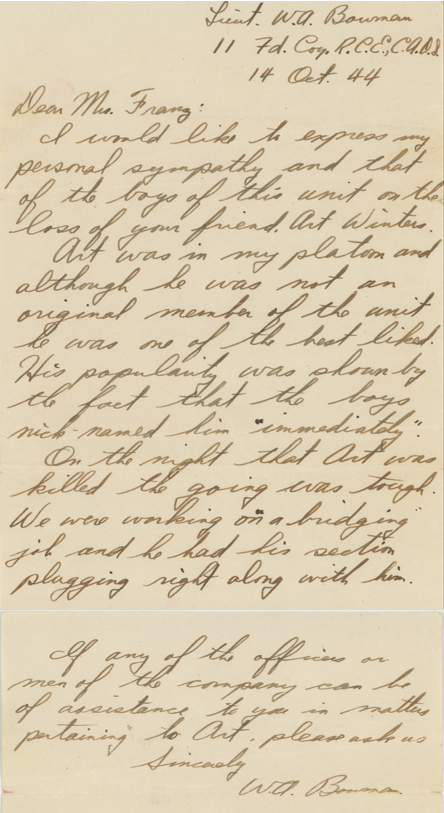 Lieut. W.A. Bowman
11 Fd. Coy. R.C.E., C.A.O.S
14 Oct. 44
Dear Mrs. Franz:
I would like to express my
personal sympathy and that
of the boys of this unit on the
loss of your friend. Art Winters.
Art was in my platoon and
although he was not an
original member of the unit
he was one of the best liked.
His popularity was shown by
the fact that the boys
nick-named him "immediately".
On the night that Art was
killed the going was tough.
We were working on "a bridging"
job and he had his section
plugging right along with him.
If any of the officers or
men of the company can be
of assistance to you in matters
pertaining to Art, please ask us
Sincerely
W.A. Bowman.